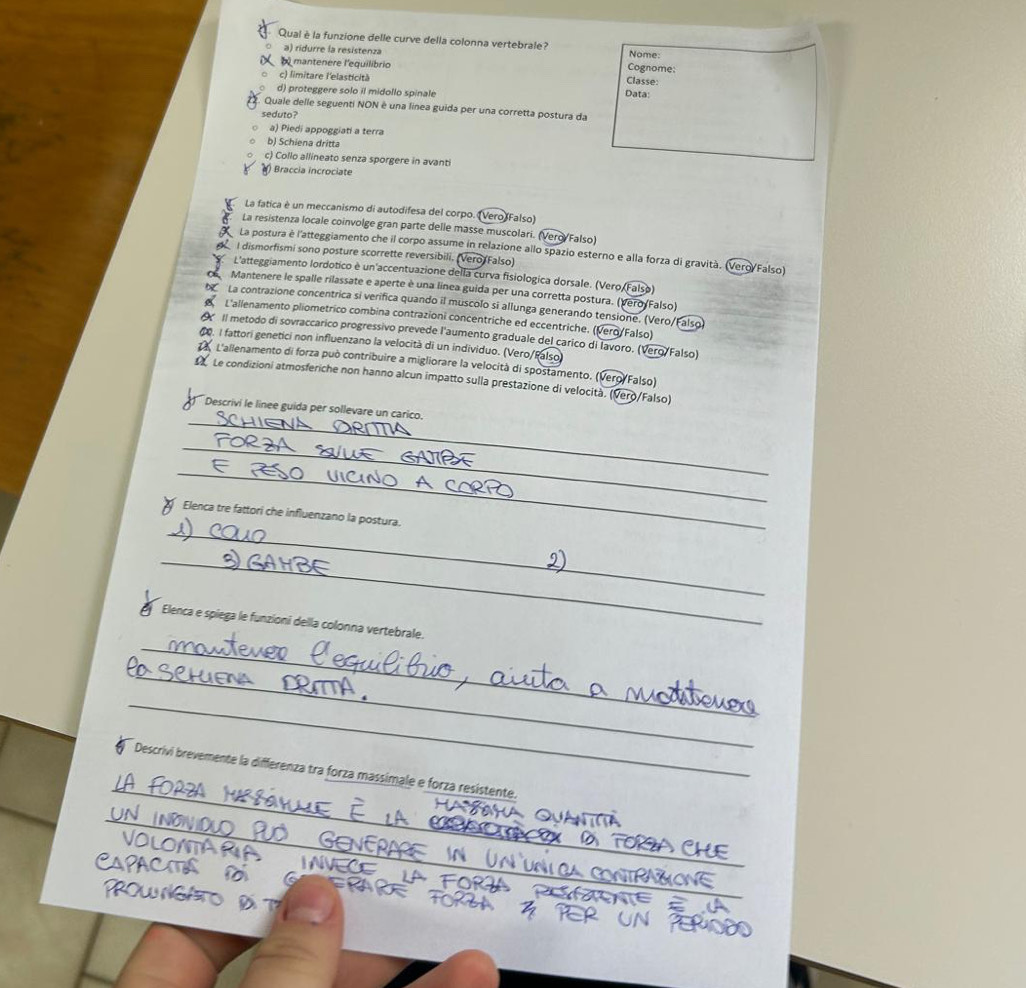 Qual è la funzione delle curve della colonna vertebrale?
a) ridurre la resistenza
mantenere l'equilibrio
c) limitare l'elasticità
d) proteggere solo il midollo spinale
Quale delle seguenti NON è una linea guida per una corretta postura da
seduto?
a) Piedi appoggiati a terra
b) Schiena dritta
c) Collo allineato senza sporgere in avanti
Braccia incrociate
Nome:
Cognome:
Classe:
Data:
La fatica è un meccanismo di autodifesa del corpo. (Vero/Falso)
La resistenza locale coinvolge gran parte delle masse muscolari. (Vero/Falso)
La postura è l'atteggiamento che il corpo assume in relazione allo spazio esterno e alla forza di gravità. (Vero/Falso)
I dismorfismi sono posture scorrette reversibili. (Vero/Falso)
L'atteggiamento lordotico è un'accentuazione della curva fisiologica dorsale. (Vero/Falso)
Mantenere le spalle rilassate e aperte è una linea guida per una corretta postura. (Vero/Falso)
La contrazione concentrica si verifica quando il muscolo si allunga generando tensione. (Vero/Falso)
L'allenamento pliometrico combina contrazioni concentriche ed eccentriche. (Vero/Falso)
Il metodo di sovraccarico progressivo prevede l'aumento graduale del carico di lavoro. (Vero/Falso)
I fattori genetici non influenzano la velocità di un individuo. (Vero/Falso)
L'allenamento di forza può contribuire a migliorare la velocità di spostamento. (Vero/Falso)
Le condizioni atmosferiche non hanno alcun impatto sulla prestazione di velocità. (Vero/Falso)
Descrivi le linee guida per sollevare un carico.
SCHIENA DRITTA
FORZA SULLE GAMBE
E PESO VICINO A CORPO
Elenca tre fattori che influenzano la postura.
1) COLLO 2)
3) GAMBE
Elenca e spiega le funzioni della colonna vertebrale.
mantenere l'equilibrio, aiuta a
la SCHIENA DRITTA.
Descrivi brevemente la differenza tra forza massimale e forza resistente.
LA FORZA MASSIMALE È LA MASSIMA QUANTITÀ DI FORZA CHE
UN INDIVIDUO PUÒ GENERARE IN UN'UNICA CONTRAZIONE
VOLONTARIA INVECE LA FORZA RESISTENTE È LA
CAPACITÀ DI GENERARE FORZA PER UN PERIODO
PROLUNGATO DI